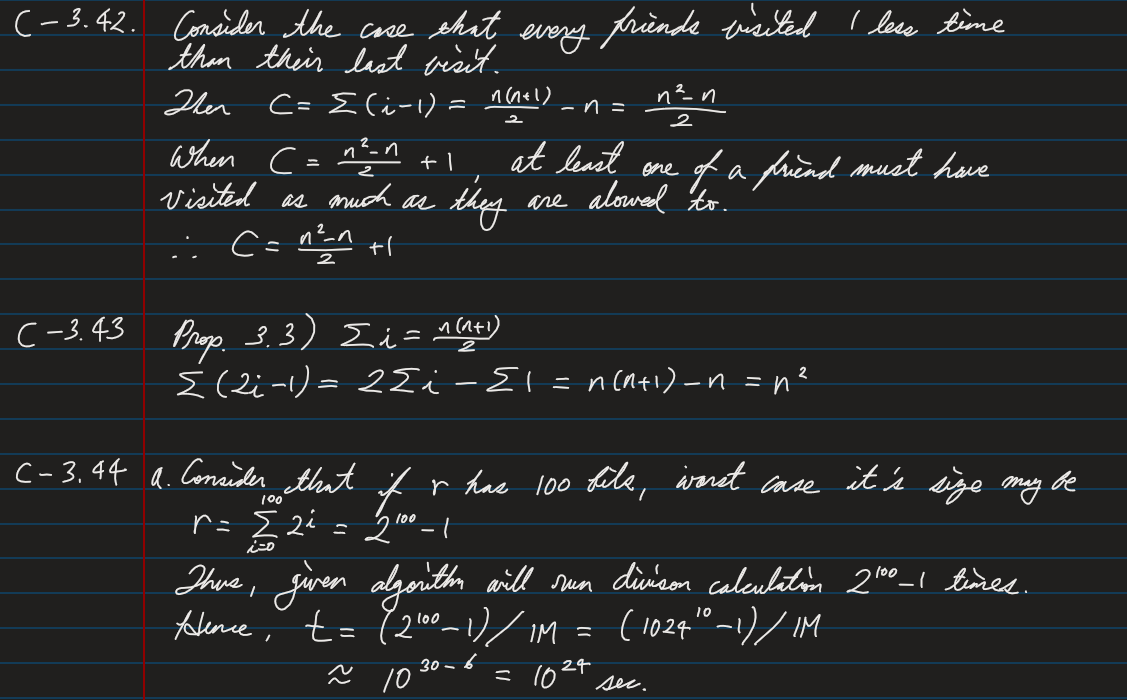 C-3.42. Consider the case that every friends visited 1 less time
than their last visit.
Then C = Σ(i-1) = n(n+1)/2 - n = n²-n/2
When C = n²-n/2 + 1, at least one of a friend must have
visited as much as they are alowed to.
∴ C = n²-n/2 + 1
C-3.43 Prop. 3.3) Σi = n(n+1)/2
Σ(2i-1) = 2Σi - Σ1 = n(n+1) - n = n²
C-3.44 a. Consider that if r has 100 bits, worst case it's size may be
r = Σ_{i=0}^{100} 2^i = 2^100 - 1
Thus, given algorithm will run divison calculation 2^100 - 1 times.
Hence, t = (2^100 - 1) / 1M = (1024^10 - 1) / 1M
≈ 10^{30-6} = 10^24 sec.